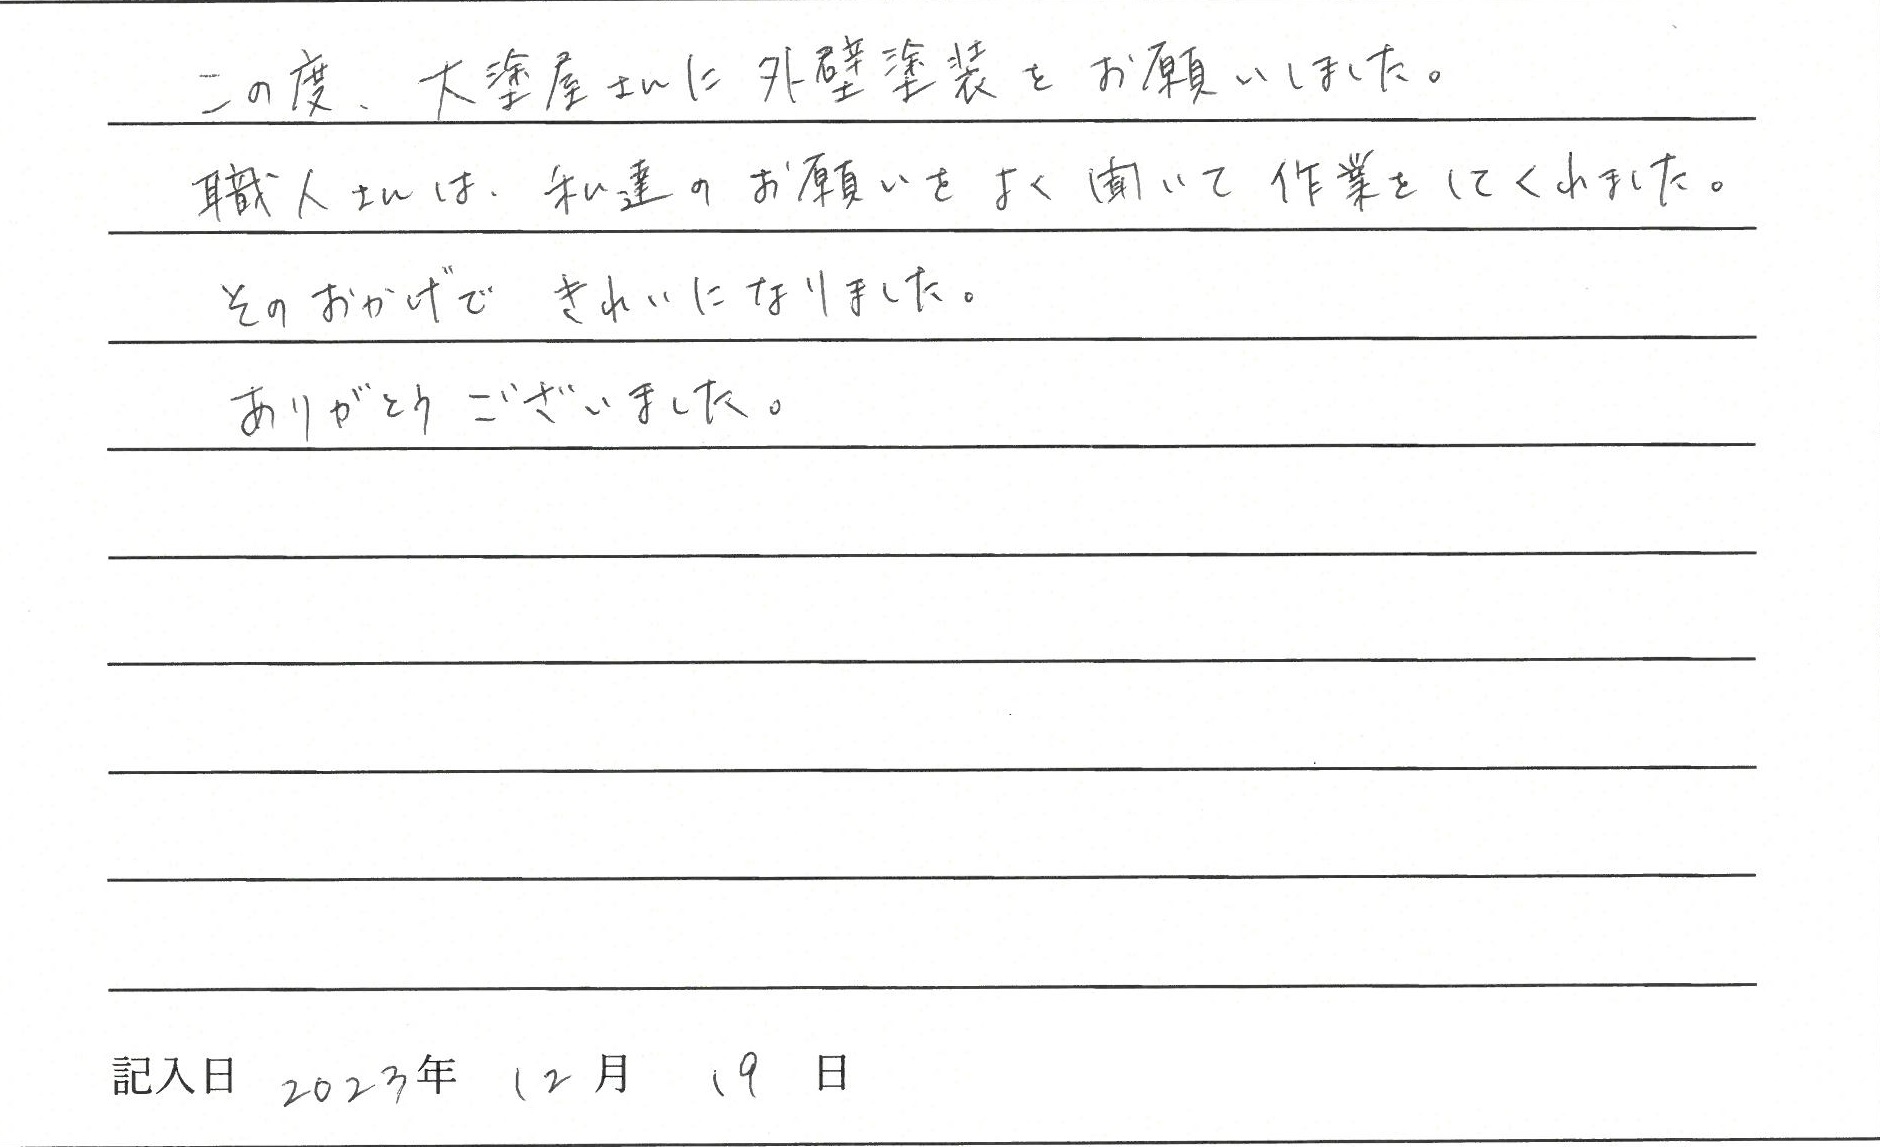 この度、大塗屋さんに外壁塗装をお願いしました。
職人さんは、私達のお願いをよく聞いて作業をしてくれました。
そのおかげできれいになりました。
ありがとうございました。
記入日 2023年 12月 19日